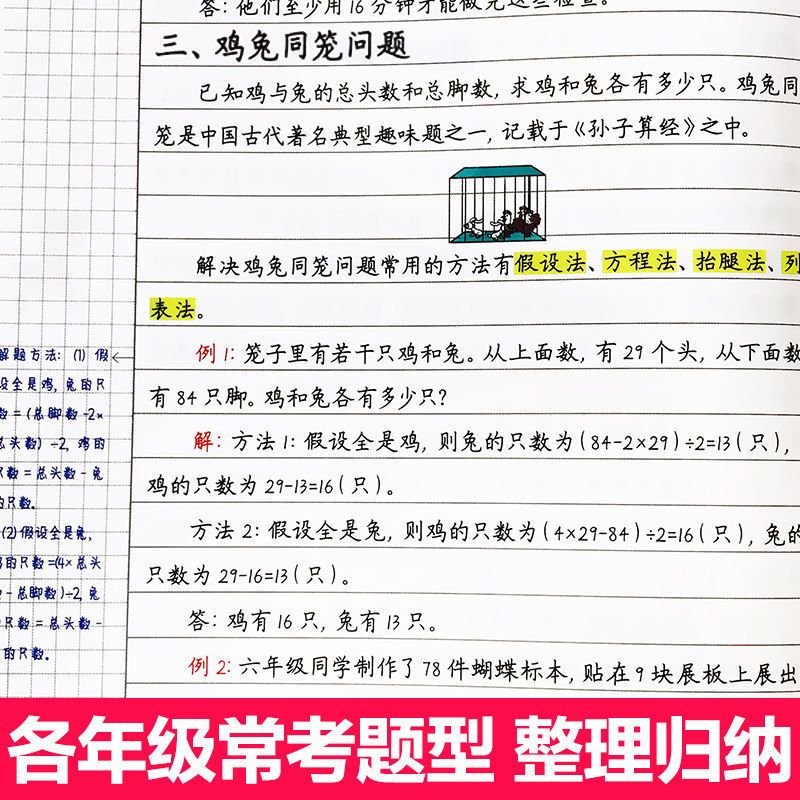 答：他们至少用16分钟才能做完这些检查。
三、鸡兔同笼问题
已知鸡与兔的总头数和总脚数，求鸡和兔各有多少只。鸡兔同
笼是中国古代著名典型趣味题之一，记载于《孙子算经》之中。
解决鸡兔同笼问题常用的方法有假设法、方程法、抬腿法、列
表法。
例1：笼子里有若干只鸡和兔。从上面数，有29个头，从下面数
有84只脚。鸡和兔各有多少只？
解：方法1：假设全是鸡，则兔的只数为(84-2×29)÷2=13(只)，
鸡的只数为29-13=16(只)。
方法2：假设全是兔，则鸡的只数为(4×29-84)÷2=16(只)，兔的
只数为29-16=13(只)。
答：鸡有16只，兔有13只。
例2：六年级同学制作了78件蝴蝶标本，贴在9块展板上展出
解题方法：(1)假
设全是鸡，兔的只
数=(总脚数-2×
总头数)÷2，鸡的
只数=总头数-兔
的只数。
(2)假设全是兔，
鸡的只数=(4×总头
数-总脚数)÷2，兔
的只数=总头数-
的只数。
各年级常考题型 整理归纳